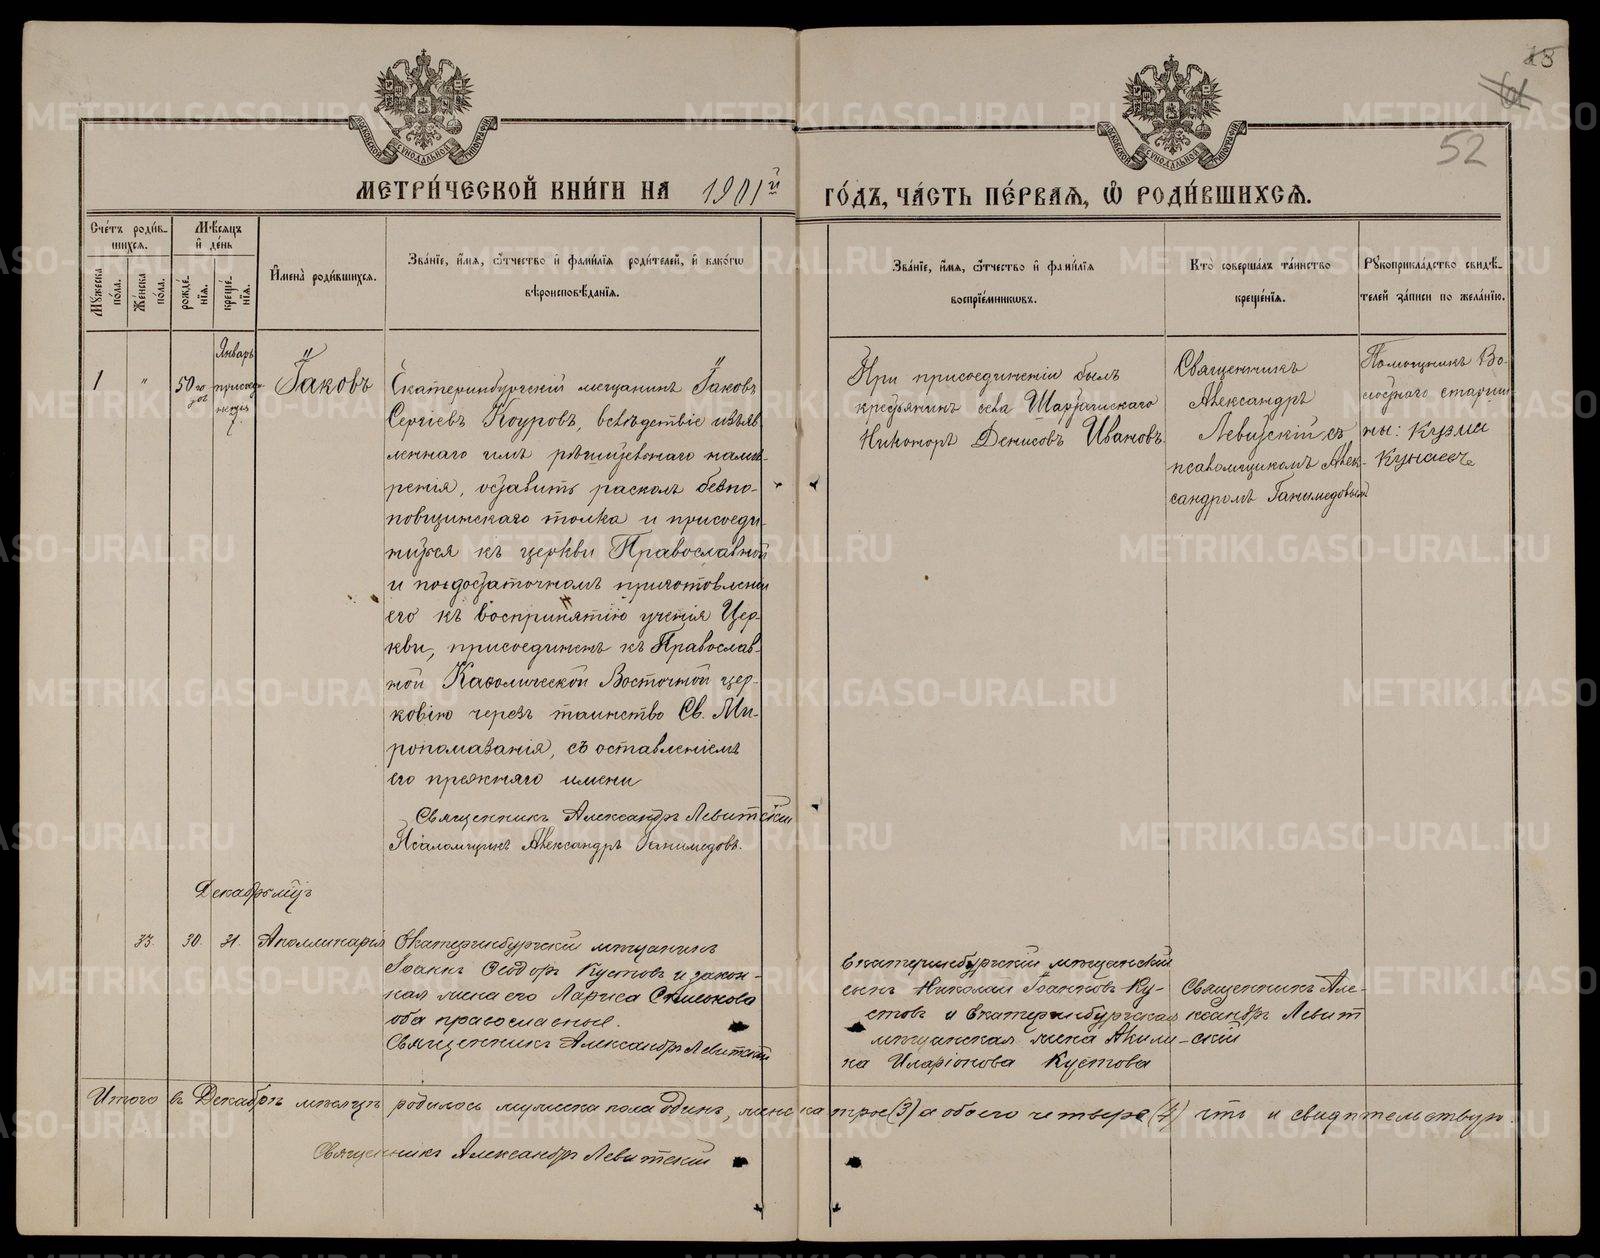 18
61
52
МЕТРИ́ЧЕСКОЙ КНИ́ГИ НА 1901й ГО́ДЪ, ЧА́СТЬ ПЕ́РВАЯ, Ѡ҆ РОДИ́ВШИХСЯ.
Сче́тъ роди́в-
шихся.
Мꙋ́жеска по́ла.
Же́нска по́ла.
Мѣ́сяцъ и҆ де́нь
рожде́-
нїѧ.
креще́-
нїѧ.
И҆мена̀ роди́вшихся.
Зва́нїе, и҆́мя, ѻ҆́тчество и҆ фами́лїя роди́телей, и҆ како́гѡ
вѣроисповѣ́данїя.
Зва́нїе, и҆́мя, ѻ҆́тчество и҆ фами́лїя
воспрїе́мникѡвъ.
Кто̀ соверша́лъ та́инство
креще́нїя.
Рꙋкоприкла́дство свидѣ́-
телей за́писи по жела́нїю.
Январь
1 " 50 го год присоед. 7. Іаковъ
Екатеринбургскій мещанинъ Іаковъ
Сергіевъ Коуровъ, вслѣдствіе изъяв-
леннаго имъ рѣшительнаго намѣ-
ренія, оставить расколъ безпо-
повщинскаго толка и присоеди-
ниться къ церкви Православной
и по достаточномъ приготовленіи
его къ воспринятію ученія Цер-
кви, присоединенъ къ Православ-
ной Каѳолической Восточной цер-
ковію черезъ таинство Св. Ми-
ропомазанія, съ оставленіемъ
его прежняго имени
Священникъ Александръ Левитскій
Псаломщикъ Александръ Ганимедовъ.
При присоединеніи былъ
крестьянинъ села Шарташскаго
Никоноръ Денисовъ Ивановъ.
Священникъ
Александръ
Левитскій съ
псаломщикомъ Алек-
сандромъ Ганимедовымъ
Помощникъ Во-
лостнаго старши-
ны: Кузма
Декабрь мцъ
33. 30. 31. Аполлинарія
Екатеринбургскій мѣщанинъ
Іоаннъ Ѳеодор. Кустовъ и закон-
ная жена его Лариса Симеонова
оба православные.
Священникъ Александръ Левитскій
Екатеринбургскій мѣщанскій
сынъ Николай Іоанновъ Ку-
стовъ и Екатеринбургская
мѣщанская жена Акили-
на Иларіонова Кустова
Священникъ Але-
ксандръ Левит-
скій
Итого въ Декабрѣ мѣсяцѣ родилось мужеска пола одинъ, женска трое (3) а обоего четыре (4) что и свидѣтельствую.
Священникъ Александръ Левитскій
METRIKI.GASO-URAL.RU